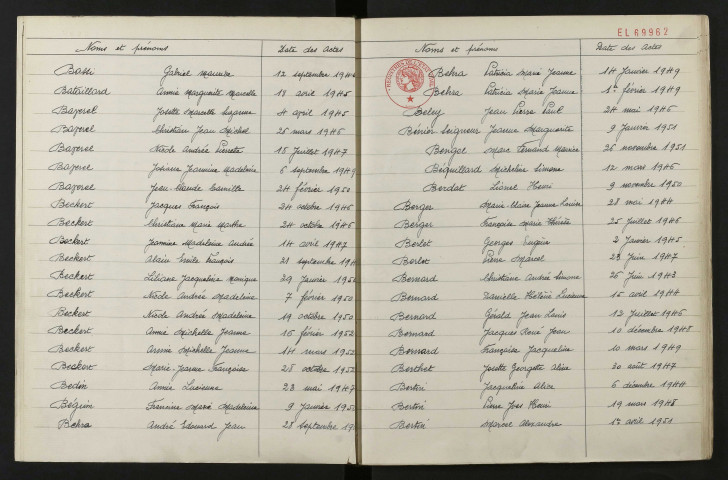 Noms et prénoms Date des Actes
Bossi Gabriel Maurice 12 septembre
Bataillard Annie Marguerite Marcelle 13 avril 1945
Bazerel Josette Marcelle Suzanne 4 avril 1945
Bazerel Christian Jean Michel 25 mars 1946
Bazerel Nicole Andrée Pierrette 15 Juillet 1947
Bazerel Jeanne Madeleine 6 septembre 1949
Bazerel Jean Claude Camille 24 février 1950
Beckert Jacques François 24 octobre 1946
Beckert Christiane Marie Marthe 24 octobre 1946
Beckert Jeannine Madeleine Andrée 14 avril 1947
Beckert Alain Emile François 21 septembre
Beckert Liliane Jacqueline Monique 29 Janvier 1950
Beckert Nicole Andrée Madeleine 7 février 1950
Beckert Nicole Andrée Madeleine 19 octobre 1950
Beckert Annie Michelle Jeanne 16 février 1952
Beckert Annie Michelle Jeanne 14 mars 1952
Beckert Marie Jeanne Françoise 28 octobre 1952
Bedin Annie Lucienne 23 mai 1947
Bégum Francine Marie Madeleine 9 Janvier
Behra André Edouard Jean 28 septembre
EL 69962
Noms et prénoms Date des Actes
Behra Patricia Marie Jeanne 14 Janvier 1949
Behra Patricia Marie Jeanne 1er février 1949
Beley Jean Pierre Paul 24 mai 1946
Bénier Seigneur Jeanne Marguerite 9 Janvier 1951
Bengel Marc Fernand Maurice 26 novembre 1951
Béquillard Micheline Simone 12 mars 1946
Berdat Lionel Henri 9 novembre 1950
Berger Marie Claire Jeanne 28 mai 1944
Berger Françoise Marie 25 Juillet 1946
Berlot Georges Eugène 2 Janvier 1945
Berlot Pierre Marcel 23 Juin 1947
Bernard Christiane Andrée Simone 26 Juin 1943
Bernard Danielle Hélène Lucienne 15 avril 1944
Bernard Gérald Jean Louis 13 Juillet 1946
Bernard Jacques René Jean 10 décembre 1948
Bernard Françoise Jacqueline 10 mars 1949
Berthet Josette Georgette Aline 30 août 1947
Bertin Jacqueline Alice 6 décembre 1944
Bertin Pierre Yves Henri 19 mars 1948
Bertin Marcel Alexandre 1er avril 1951